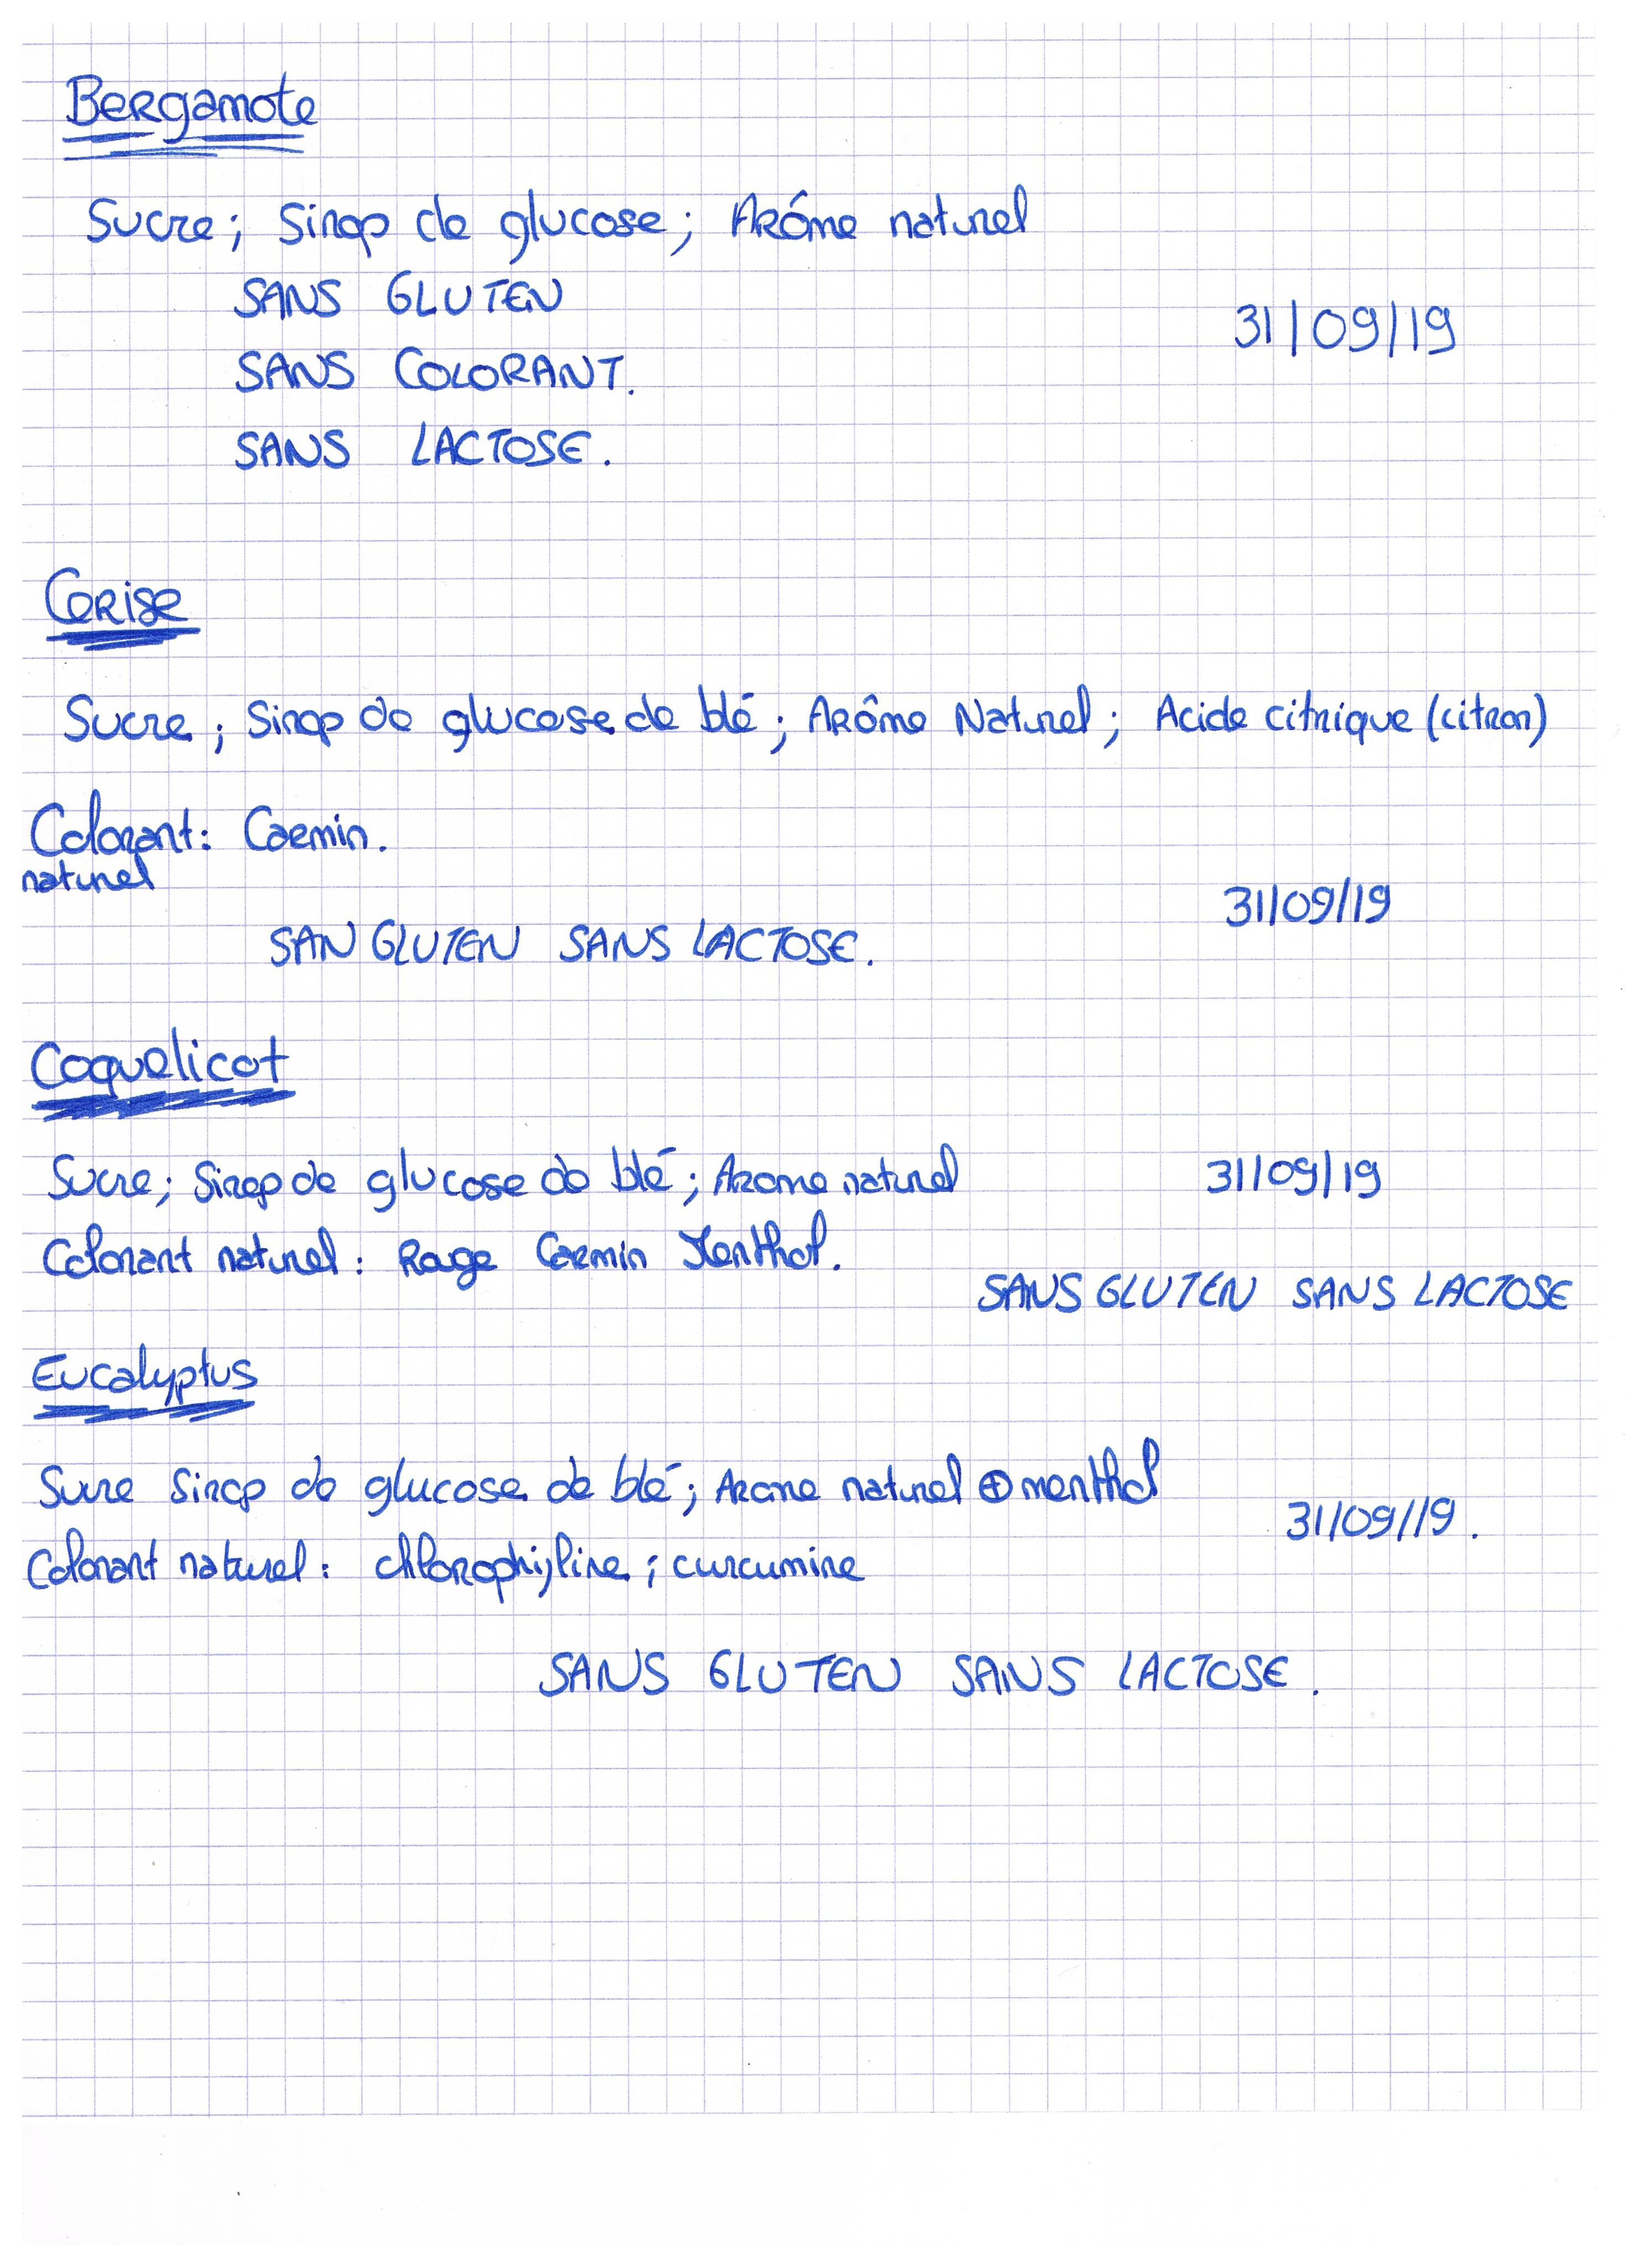 Bergamote
Sucre; Sirop de glucose; Arôme naturel
SANS GLUTEN
31/09/19
SANS COLORANT.
SANS LACTOSE.
Cerise
Sucre; Sirop de glucose de blé; Arôme Naturel; Acide citrique (citron)
Colorant: Carmin.
naturel
31/09/19
SAN GLUTEN SANS LACTOSE.
Coquelicot
Sucre; Sirop de glucose de blé; Arome naturel 31/09/19
Colorant naturel: Rouge Carmin Menthol.
SANS GLUTEN SANS LACTOSE
Eucalyptus
Sucre Sirop de glucose de blé; Arome naturel ⊕ menthol
31/09/19.
Colorant naturel: chlorophylline; curcumine
SANS GLUTEN SANS LACTOSE.